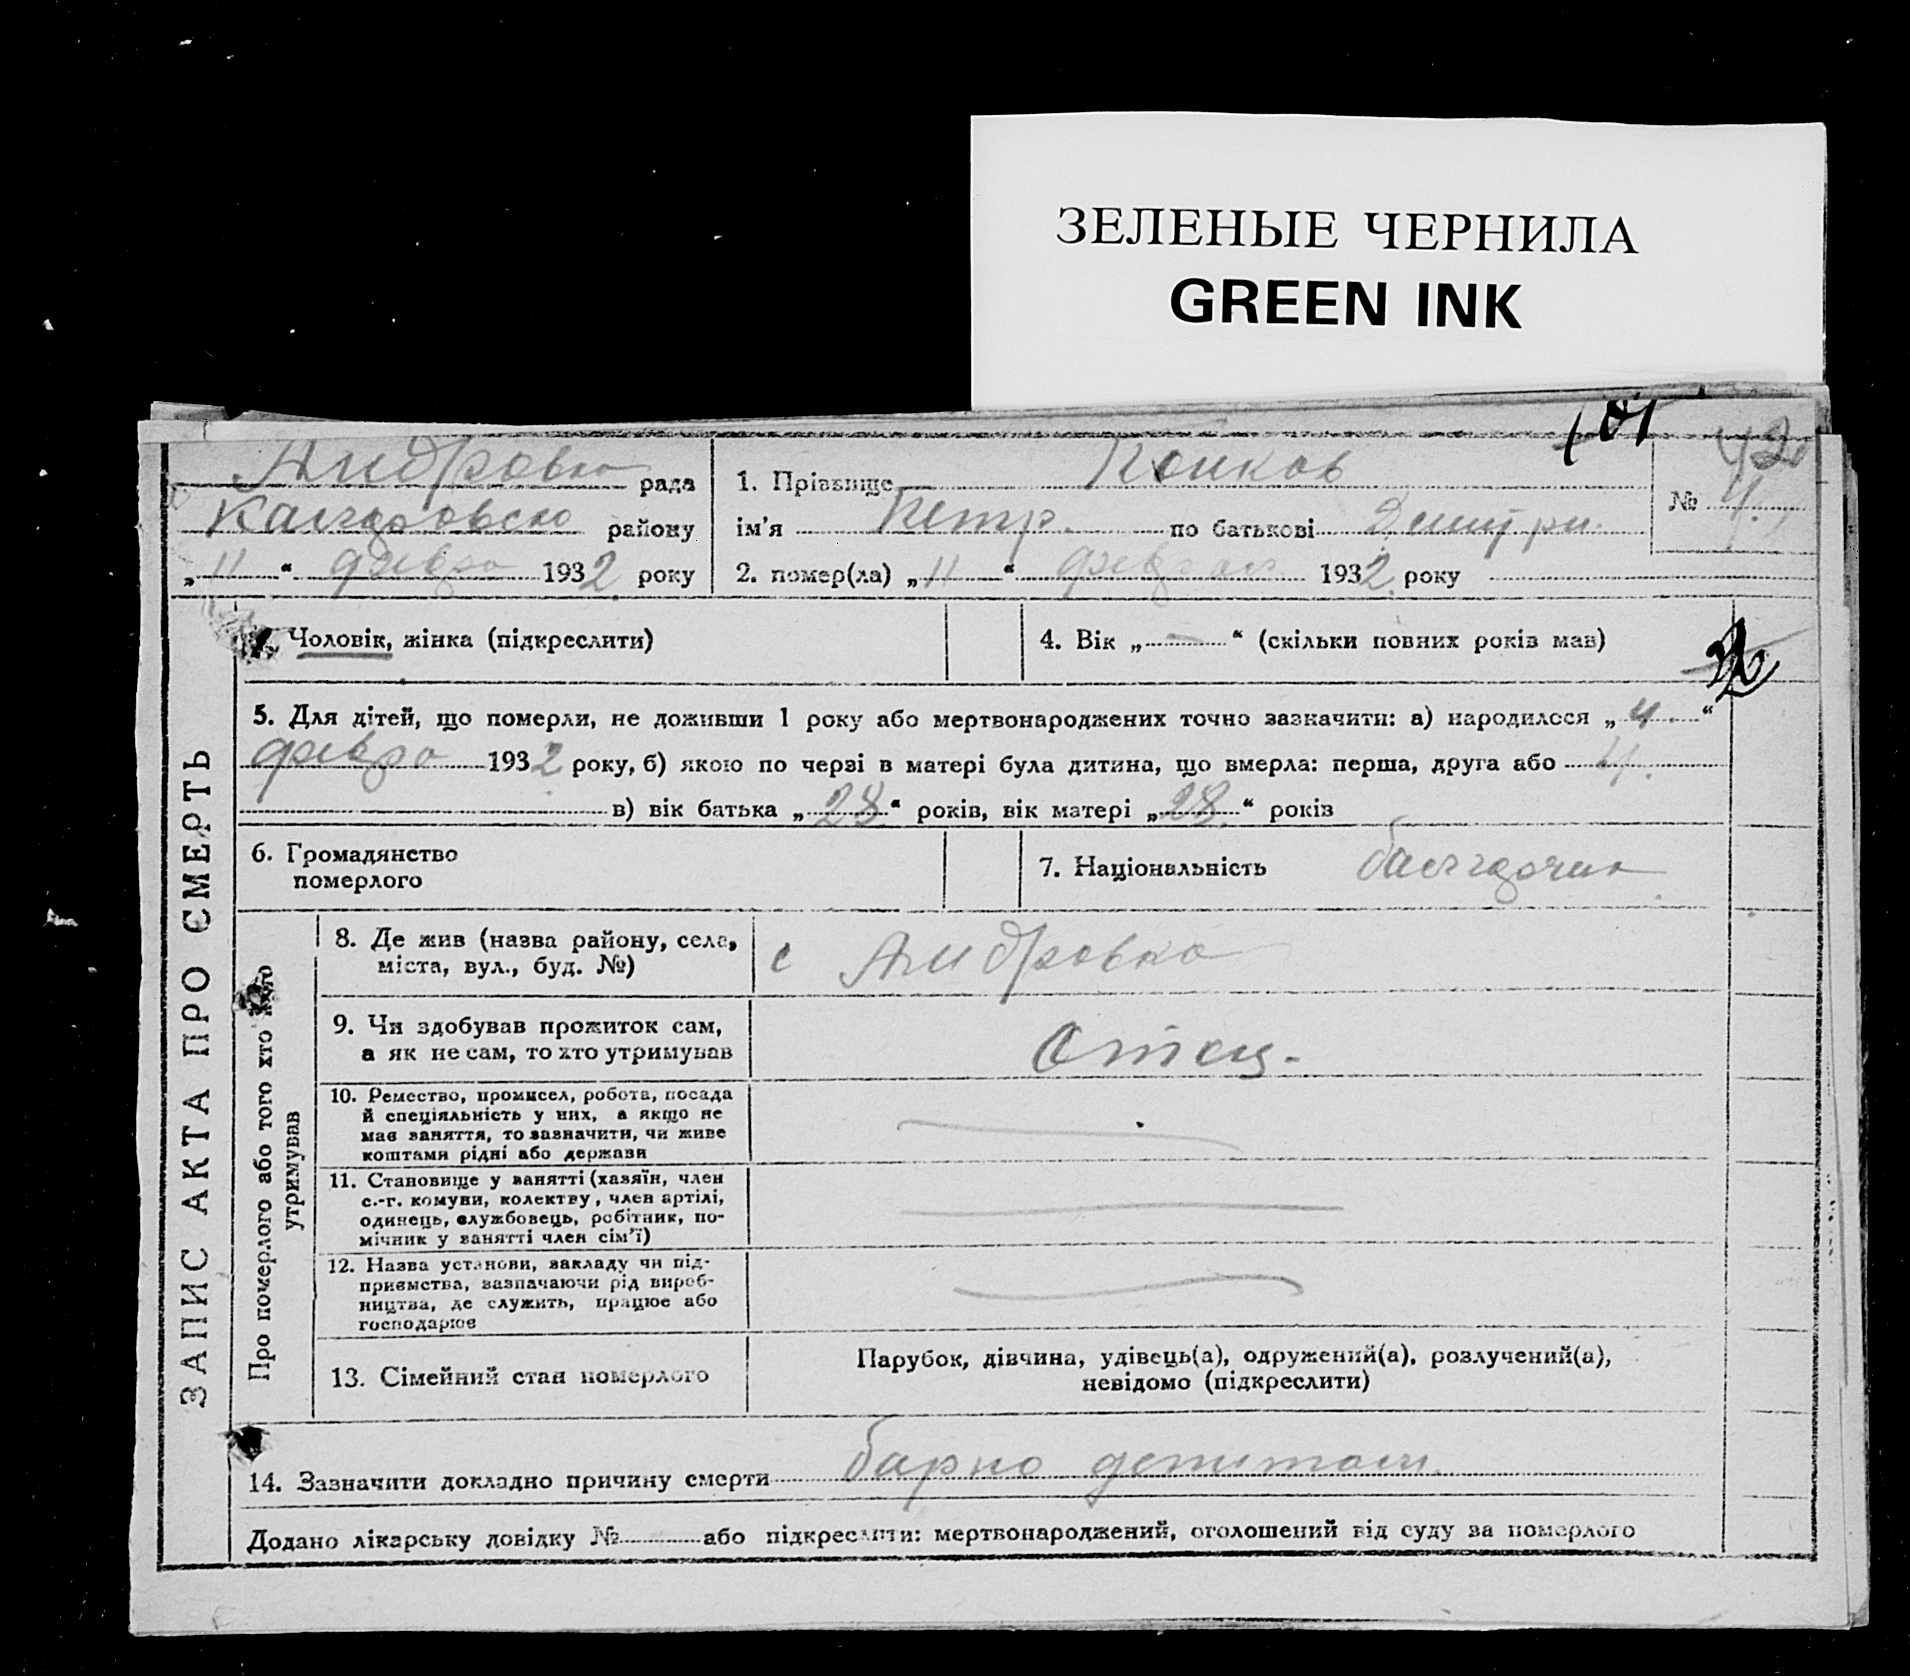 ЗЕЛЕНЫЕ ЧЕРНИЛА
GREEN INK
101
42
рада
району
„11“ февра 1932 року
1. Прізвище
№ 4.
ім’я Петр. по батькові Дмитри.
2. помер(ла) „11“ 1932 року
Чоловік, жінка (підкреслити)
4. Вік „—“ (скільки повних років мав)
5. Для дітей, що померли, не доживши 1 року або мертвонароджених точно зазначити: а) народилося „4“
февра 1932 року, б) якою по черзі в матері була дитина, що вмерла: перша, друга або 4.
в) вік батька „28“ років, вік матері „28“ років
6. Громадянство
померлого
7. Національність
ЗАПИС АКТА ПРО СМЕРТЬ
Про померлого або того хто його
утримував
8. Де жив (назва району, села,
міста, вул., буд. №)
с
9. Чи здобував прожиток сам,
а як не сам, то хто утримував
Отец.
10. Ремество, промисел, робота, посада
й спеціяльність у них, а якщо не
має заняття, то зазначити, чи живе
коштами рідні або держави
11. Становище у занятті (хазяїн, член
с.-г. комуни, колективу, член артілі,
одинець, службовець, робітник, по-
мічник у занятті член сім’ї)
12. Назва установи, закладу чи під-
приємства, зазначаючи рід вироб-
ництва, де служить, працює або
господарює
13. Сімейний стан померлого
Парубок, дівчина, удівець(а), одружений(а), розлучений(а),
невідомо (підкреслити)
14. Зазначити докладно причину смерти
Додано лікарську довідку № або підкреслити: мертвонароджений, оголошений від суду за померлого